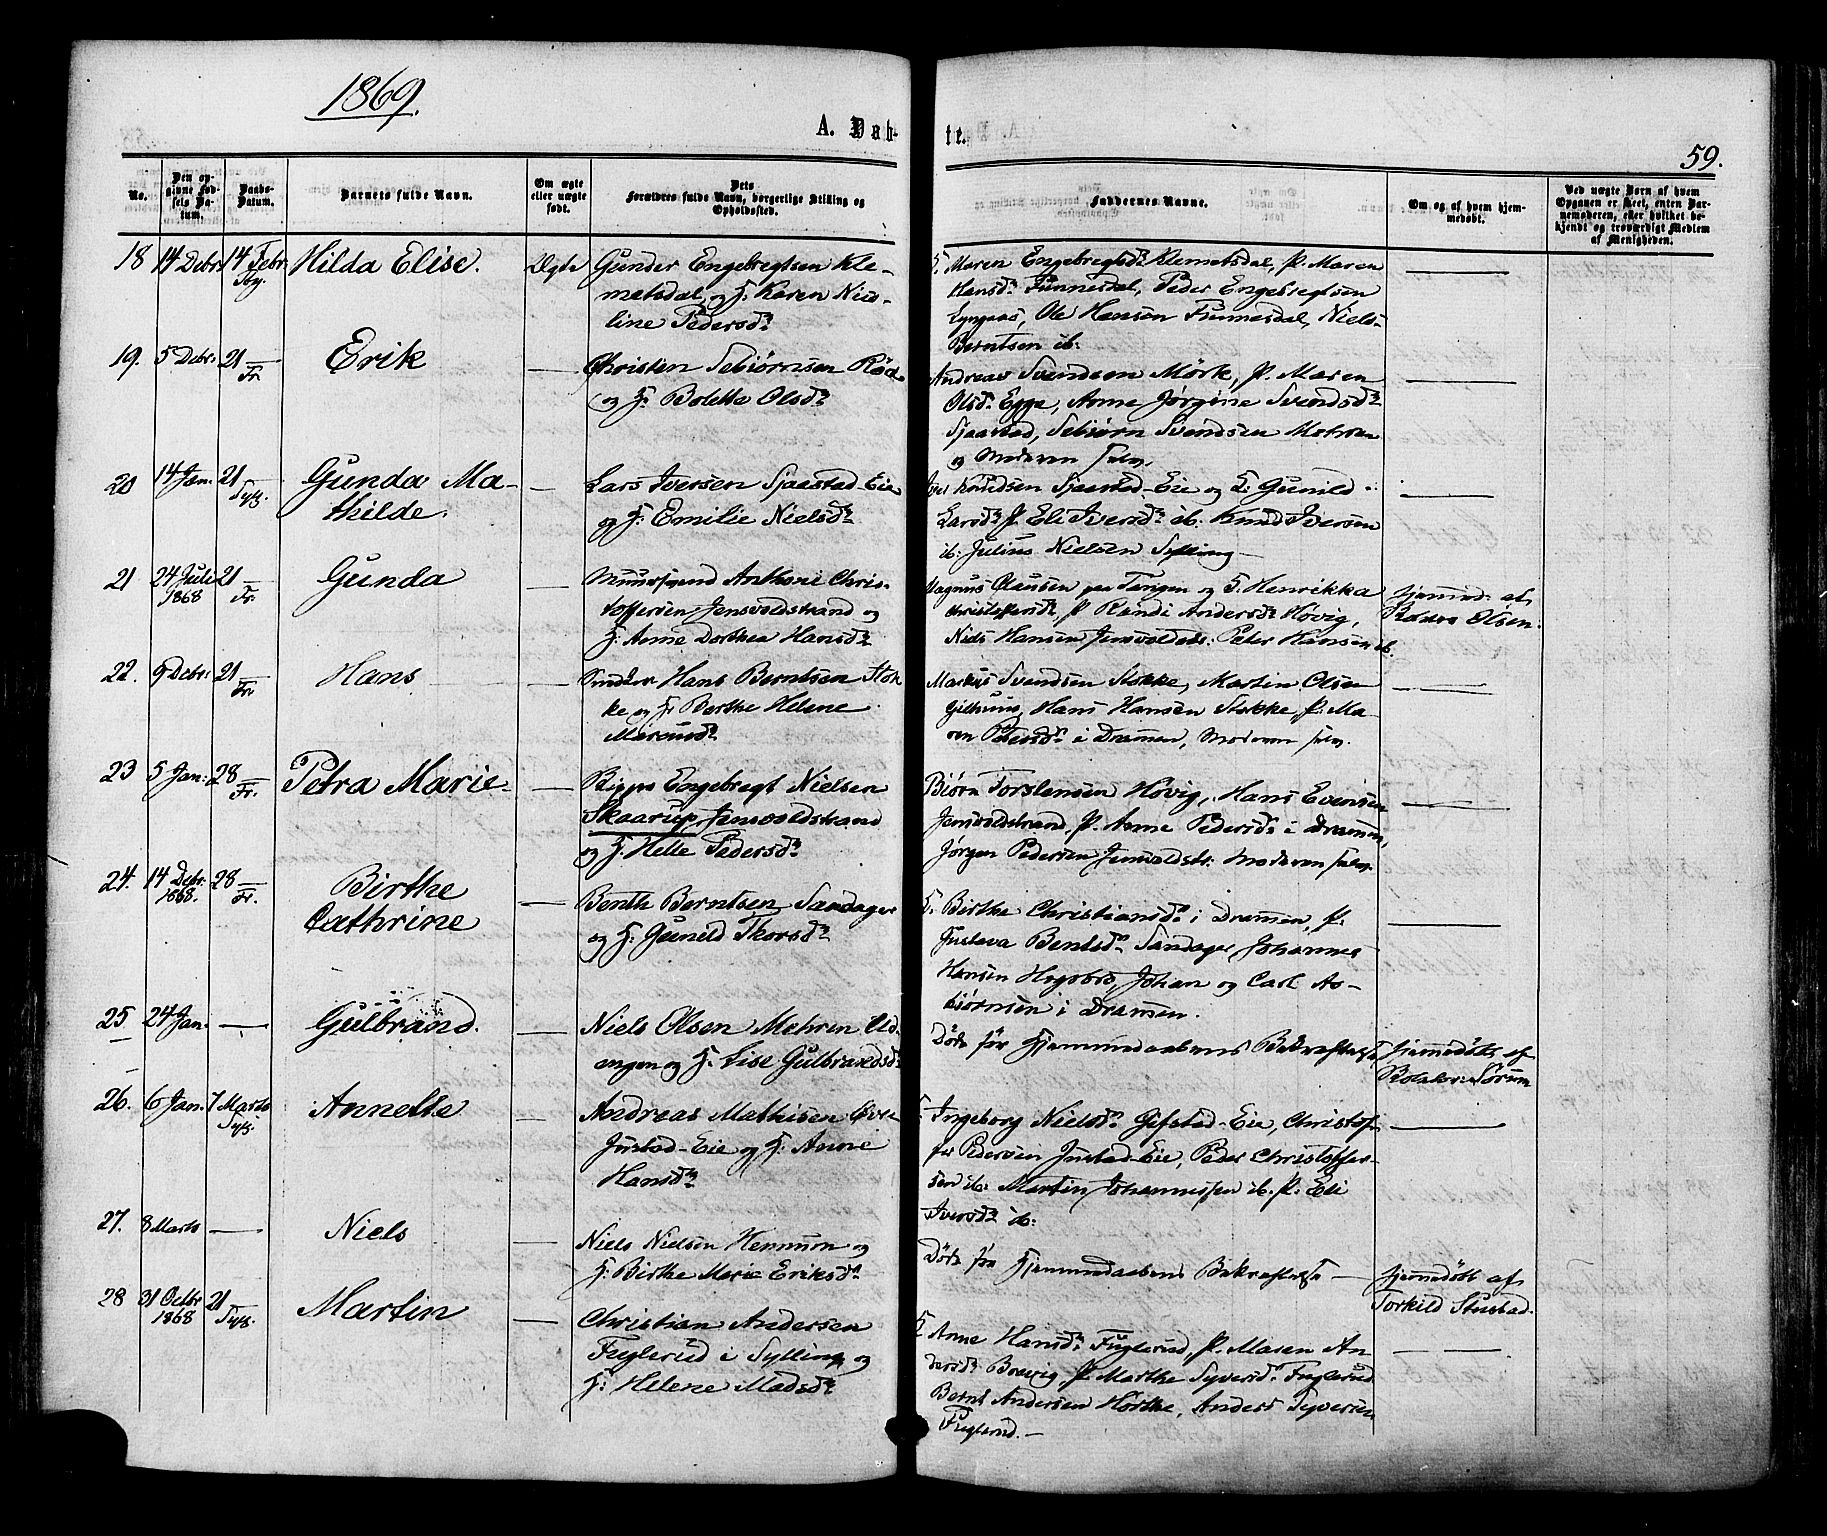 1869.
A. Døb-
te.
59.
No.
Den opgivne Fødsels Datum.
Daabs-Datum.
Barnets fulde Navn.
Om ægte eller uægte født.
Dets Forældres fulde Navn, borgerlige Stilling og Opholdssted.
Faddernes Navne.
Om og af hvem hjemmedøbt.
Ved uægte Børn af hvem Opgaven er skeet, enten Barnemoderen, eller hvilket bekjendt og troværdigt Medlem af Menigheden.
18 14 Debr. 14 Febr. Tby. Hilda Elise. Ægte
Gunder Engebregtsen Kle-
metsdal og H. Karen Nico-
line Pedersdr.
F. Maren Engebregtsdr. Klemetsdal, P. Maren
Hansdr. Funnesdal, Peder Engebregtsen
Lyngaas, Ole Hansen Funnesdal, Niels
Berntsen ib.
19. 5 Debr. 21 Fr. Erik
Christen Sebiørnsen Röd
og H. Bolette Olsdr.
Andreas Svendsen Mörk, P. Maren
Olsdr. Egge, Anne Jørgine Svendsdr.
Sjaastad, Sebiørn Svendsen Mehren
og Moderen selv.
20 14 Jan. 21 Tyf. Gunda Ma-
thilde.
Lars Iversen Sjaastad-Eie
og H. Emilie Nielsdr.
Iver Knudsen Sjaastad-Eie og H. Gunild
Larsdr. P. Eli Iversdr. ib. Knud Iversen
ib. Julius Nielsen Sylling
21 24 Juli 1868 21 Fr. Gunda
Anthoni Chris-
toffersen Jensvoldstrand og
H. Anne Dorthea Hansdr.
Magnus Clausen paa Tangen og H. Henrikka
Christoffersdr. P. Randi Andersdr. Høvig,
Niels Hansen Jensvoldstr. Peter Hansen ib.
hjemmed. af
Olsen.
22. 9 Debr. 21 Fr. Hans
Snedker Hans Berntsen Stok-
ke og H. Berthe Helene
Marcusdr.
Markus Svendsen Stokke, Martin Olsen
Gilhuus, Hans Hansen Stokke, P. Ma-
ren Petersdr. i Drammen, Moderen selv.
23 5 Jan. 28 Fr. Petra Marie
Engebregt Nielsen
Skaarup, Jensvoldstrand
og H. Helle Pedersdr.
Biørn Torstensen Høvig, Hans Evensen
Jensvoldstrand P. Anne Pedersdr. i Drammen,
Jørgen Pedersen Jensvoldstr. Moderen selv.
24. 14 Debr. 1868. 28 Fr. Birthe
Cathrine
Bernth Berntsen Sandager
og H. Gunild Thorsdr.
F. Birthe Christiansdr. i Dramen, P.
Gustava Berntsdr. Sandager, Johannes
Hansen Hogsbro, Johan og Carl As-
biørnsen i Dramen.
25. 24 Jan. Gulbrand.
Niels Olsen Mehren Ed-
engen og H. Lise Gulbrandsdr.
Døde før Hjemmedaabens Bekræftelse
hjemmedöbt af
Sørum
26. 6 Jan. 7 Marts Annette
Andreas Mathisen Øvre
Justad-Eie og H. Anne
Hansdr.
F. Ingeborg Nielsdr. Gifstad-Eie, Christof-
fer Pedersen Justad-Eie, Peder Christoffer-
sen ib. Martin Johannessen ib. P. Eli
Iversdr. ib.
27. 8 Marts Niels
Niels Nielsen Hennum og
H. Birthe Marie Eriksdr.
Døde før Hjemmedaabens Bekræftelse
hjemmedöbt af
Torkild Stustad.
28 31 Octbr. 1868 21 Tyf. Martin
Christian Andersen
Fuglerud i Sylling og
H. Helene Madsdr.
F. Anne Hansdr. Fuglerud, P. Maren An-
dersdr. Brevig, P. Marthe Syversdr. Fuglerud
Bernt Andersen Hörthe, Anders Syversen
Fuglerud.